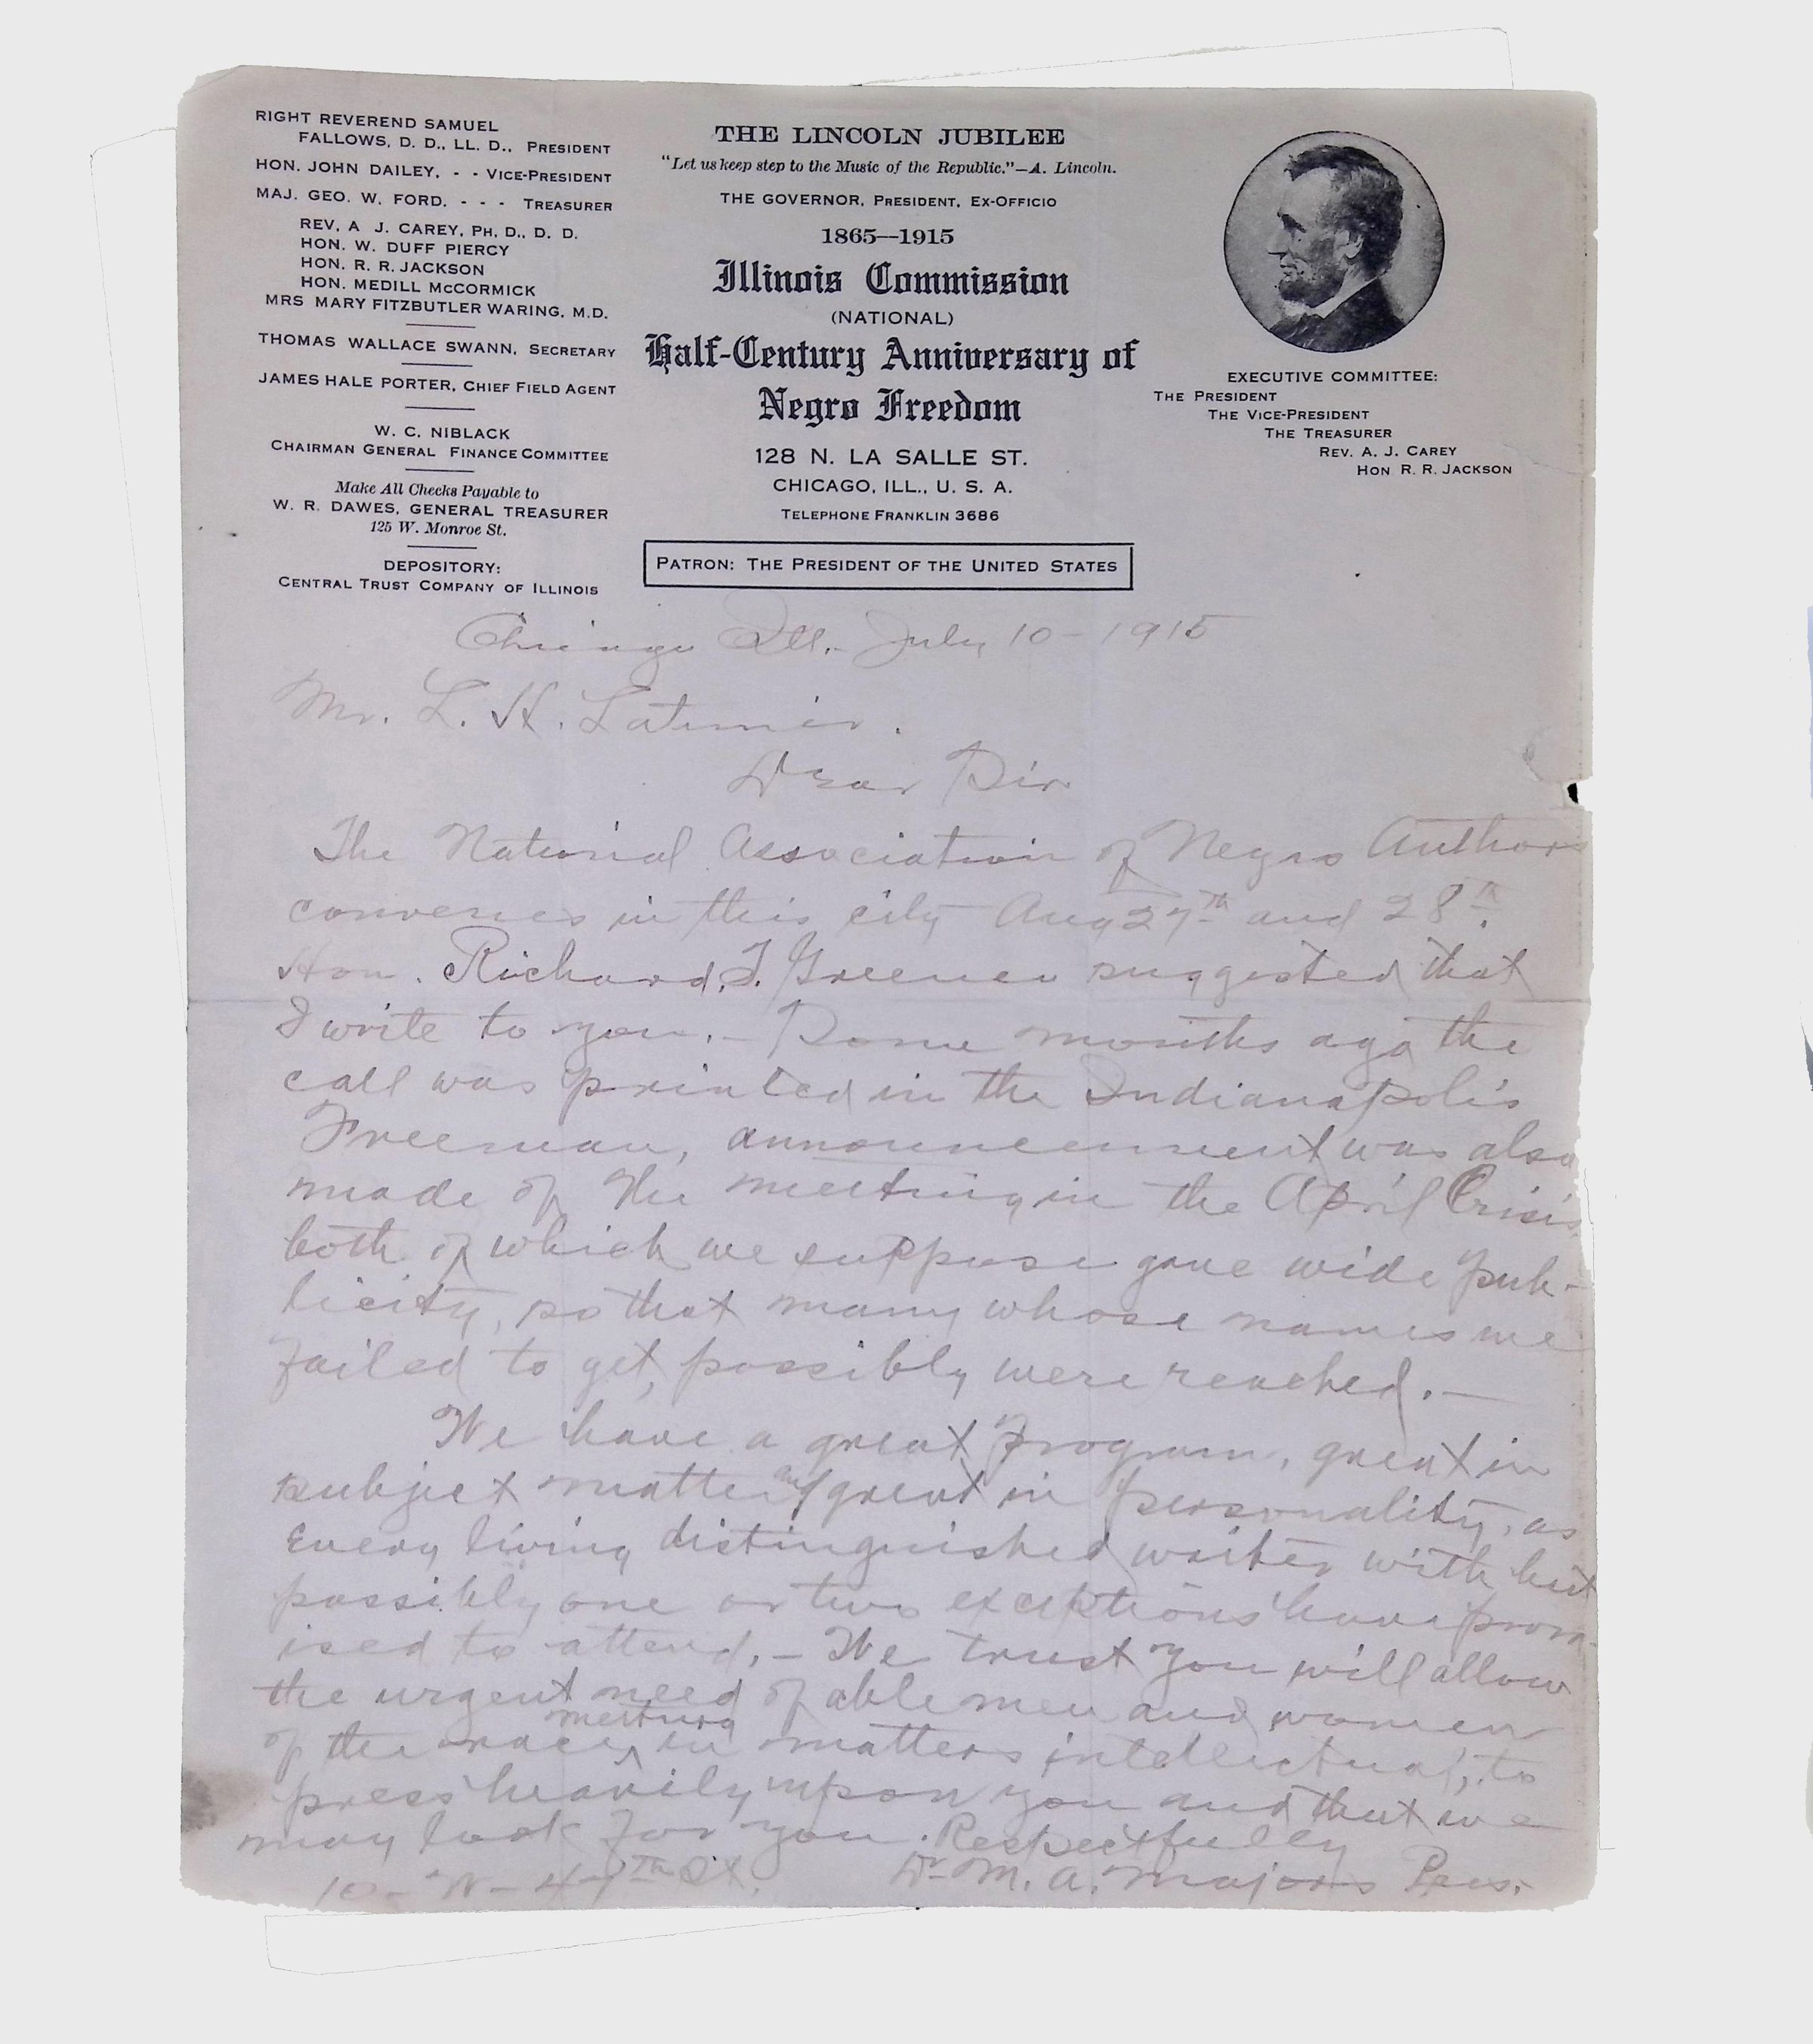 RIGHT REVEREND SAMUEL
FALLOWS, D. D., LL. D., PRESIDENT
HON. JOHN DAILEY, - - VICE-PRESIDENT
MAJ. GEO. W. FORD. - - - TREASURER
REV. A J. CAREY, PH. D., D. D.
HON. W. DUFF PIERCY
HON. R. R. JACKSON
HON. MEDILL McCORMICK
MRS MARY FITZBUTLER WARING, M.D.
THOMAS WALLACE SWANN, SECRETARY
JAMES HALE PORTER, CHIEF FIELD AGENT
W. C. NIBLACK
CHAIRMAN GENERAL FINANCE COMMITTEE
Make All Checks Payable to
W. R. DAWES, GENERAL TREASURER
125 W. Monroe St.
DEPOSITORY:
CENTRAL TRUST COMPANY OF ILLINOIS
THE LINCOLN JUBILEE
"Let us keep step to the Music of the Republic."—A. Lincoln.
THE GOVERNOR, PRESIDENT, EX-OFFICIO
1865—1915
Illinois Commission
(NATIONAL)
Half-Century Anniversary of
Negro Freedom
128 N. LA SALLE ST.
CHICAGO, ILL., U. S. A.
TELEPHONE FRANKLIN 3686
PATRON: THE PRESIDENT OF THE UNITED STATES
EXECUTIVE COMMITTEE:
THE PRESIDENT
THE VICE-PRESIDENT
THE TREASURER
REV. A. J. CAREY
HON R. R. JACKSON
Chicago Ill. July 10 - 1915
Mr. L. H. Latimer.
Dear Sir
The National Association of Negro Authors
convenes in this city Aug 27th and 28th.
Hon. Richard T. Greener suggested that
I write to you. - Some months ago the
call was printed in the Indianapolis
Freeman, announcement was also
made of the meeting in the April Crisis
both of which we suppose gave wide pub-
licity, so that many whose names we
failed to get, possibly were reached. —
We have a great program, great in
subject matter and great in personality, as
every living distinguished writer with but
possibly one or two exceptions have prom-
ised to attend. - We trust you will allow
the urgent need of able men and women
of the race, meeting in matters intellectual, to
press heavily upon you and that we
may look for you. Respectfully
10 - W - 47th St. Dr. M. A. Majors Pres.